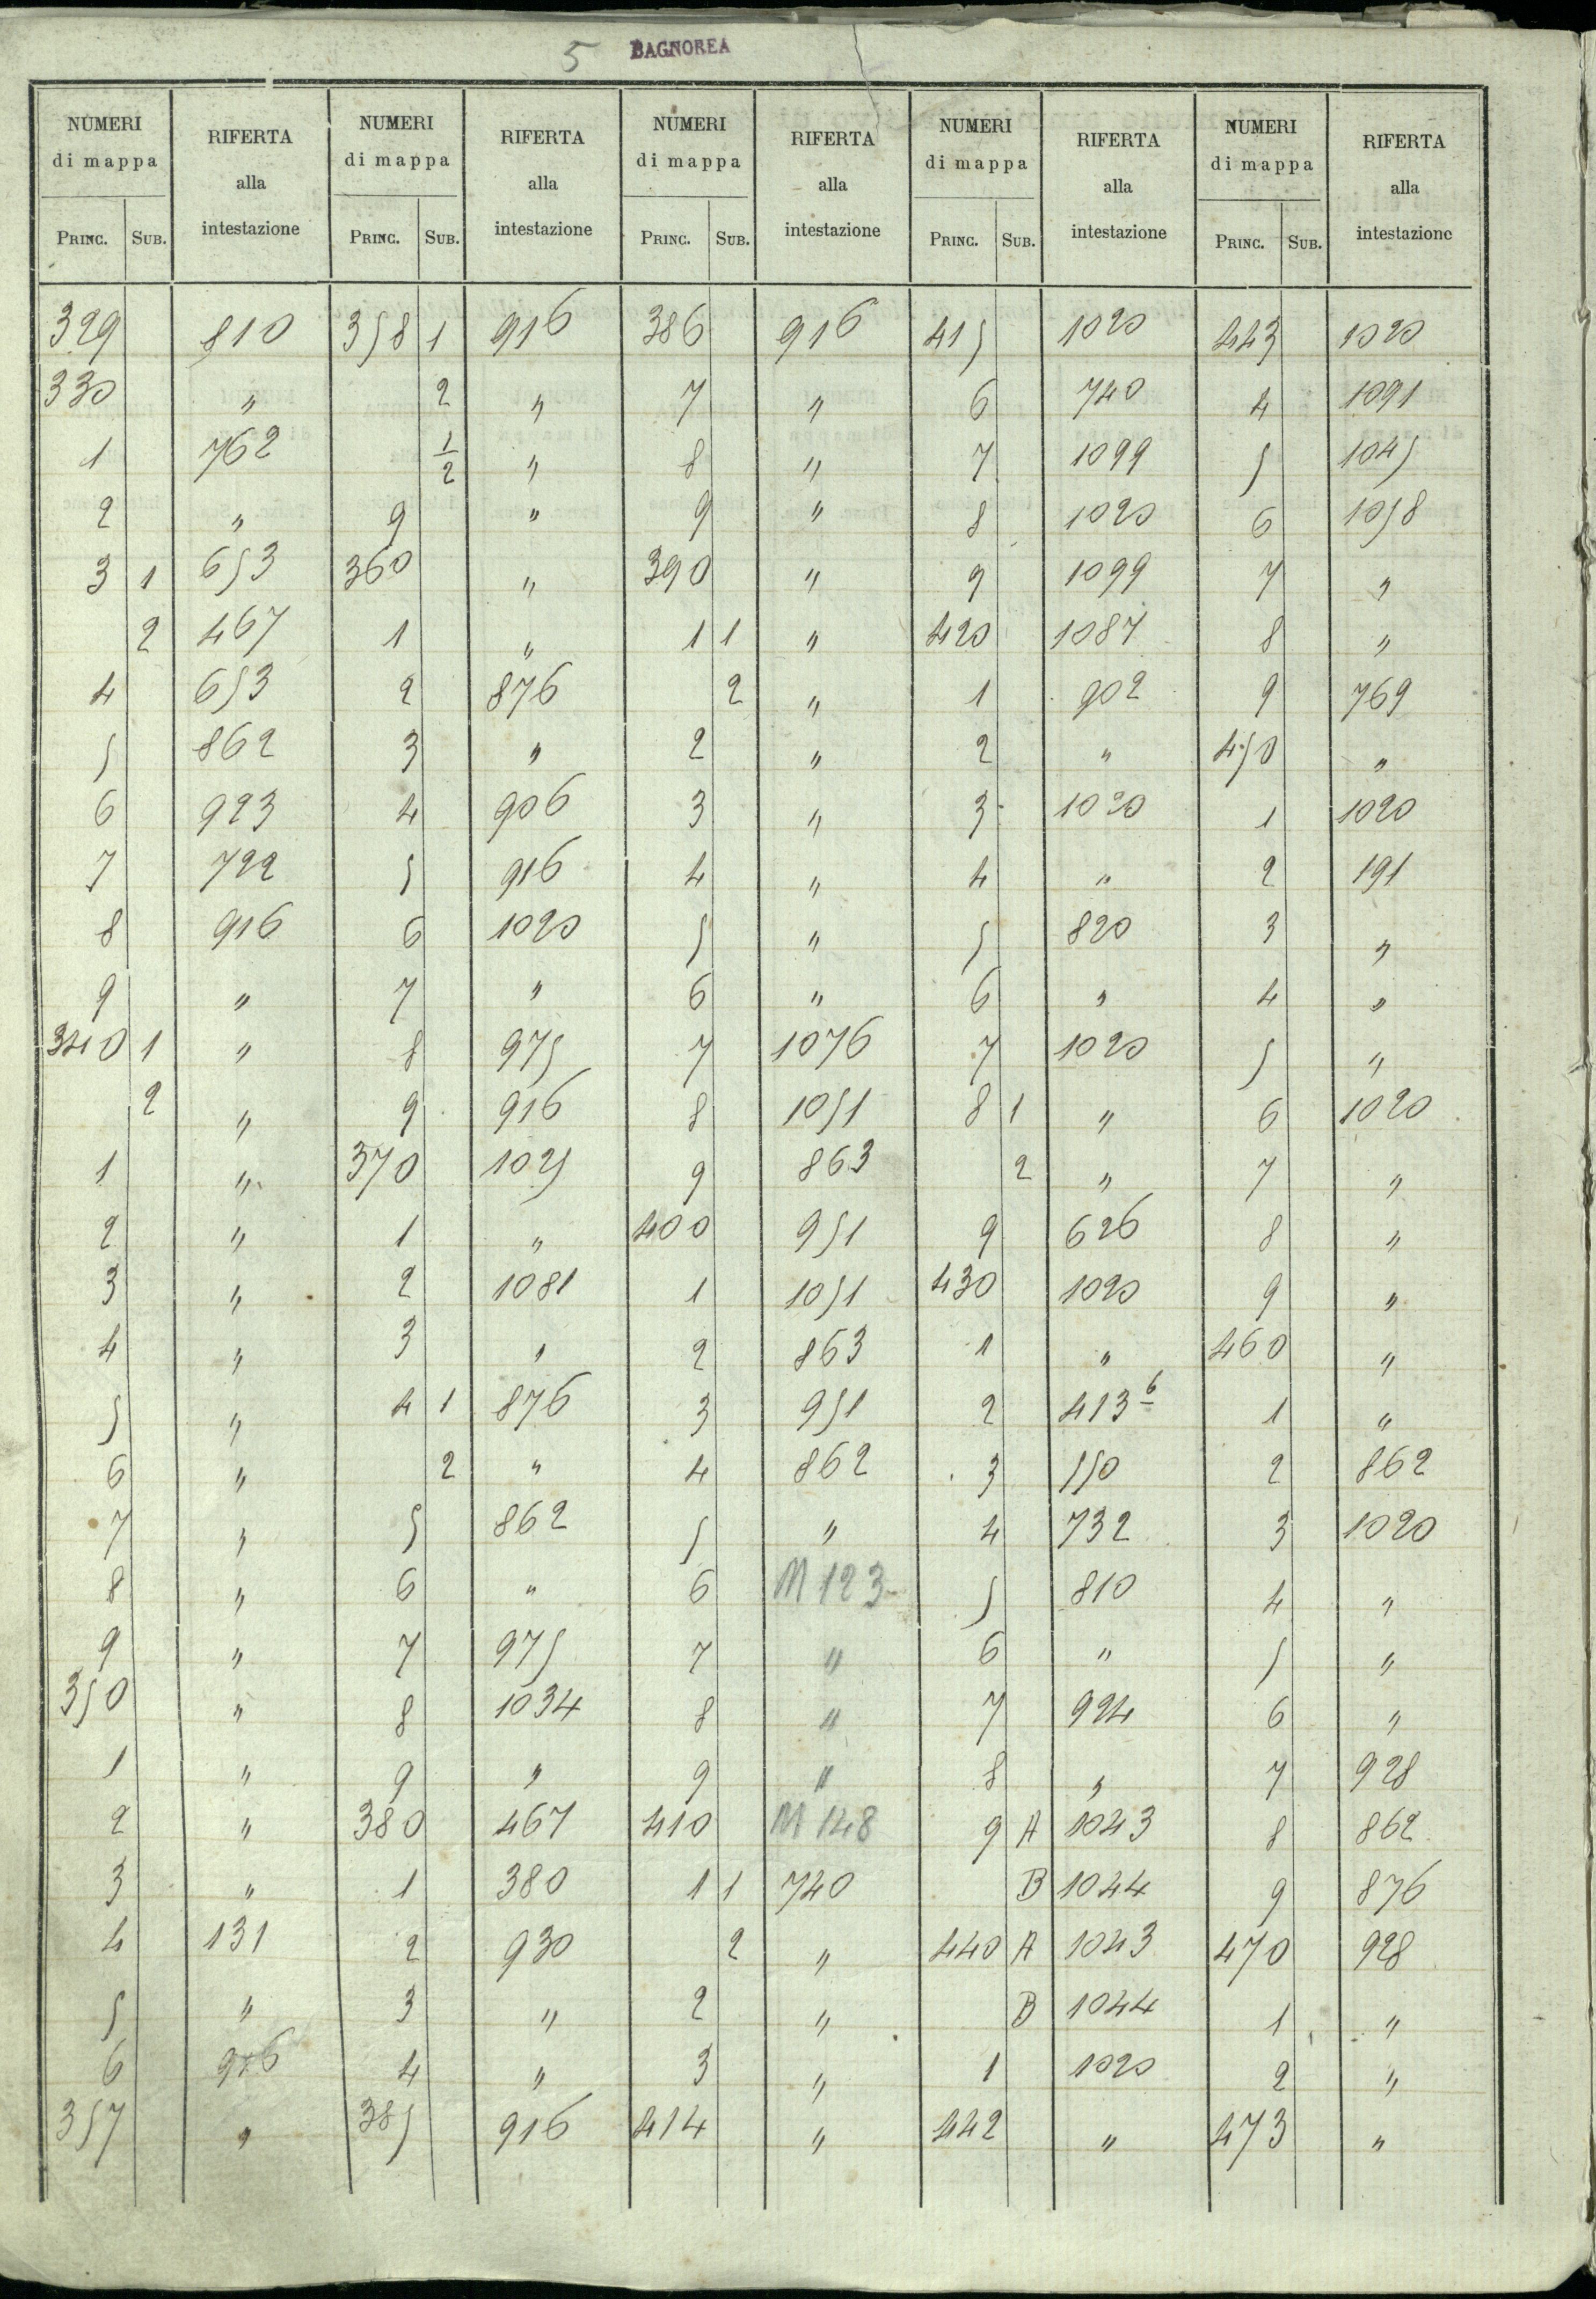 5 BAGNOREA
NUMERI di mappa RIFERTA alla intestazione NUMERI di mappa RIFERTA alla intestazione NUMERI di mappa RIFERTA alla intestazione NUMERI di mappa RIFERTA alla intestazione NUMERI di mappa RIFERTA alla intestazione
PRINC. SUB. PRINC. SUB. PRINC. SUB. PRINC. SUB. PRINC. SUB.
329 810 358 1 916 386 916 415 1020 443 1020
330 " 2 " 7 " 6 740 4 1091
1 762 1/2 " 8 " 7 1099 5 1045
2 " 9 " 9 " 8 1020 6 1058
3 1 653 360 " 390 " 9 1099 7 "
2 467 1 " 1 1 " 420 1087 8 "
4 653 2 876 2 " 1 902 9 769
5 862 3 " 2 " 2 " 450 "
6 923 4 906 3 " 3 1020 1 1020
7 722 5 916 4 " 4 " 2 191
8 916 6 1020 5 " 5 820 3 "
9 " 7 " 6 " 6 " 4 "
340 1 " 8 975 7 1076 7 1020 5 "
2 " 9 916 8 1051 8 1 " 6 1020
1 " 370 1025 9 863 2 " 7 "
2 " 1 " 400 951 9 626 8 "
3 " 2 1081 1 1051 430 1020 9 "
4 " 3 " 2 863 1 " 460 "
5 " 4 1 876 3 951 2 413 6 1 "
6 " 2 " 4 862 3 550 2 862
7 " 5 862 5 " 4 732 3 1020
8 " 6 " 6 M 123 5 810 4 "
9 " 7 975 7 " 6 " 5 "
350 " 8 1034 8 " 7 924 6 "
1 " 9 " 9 " 8 " 7 928
2 " 380 467 410 M 148 9 A 1043 8 862
3 " 1 380 1 1 740 B 1044 9 876
4 131 2 930 2 " 440 A 1043 470 928
5 " 3 " 2 " B 1044 1 "
6 916 4 " 3 " 1 1020 2 "
357 " 385 916 414 " 442 " 473 "